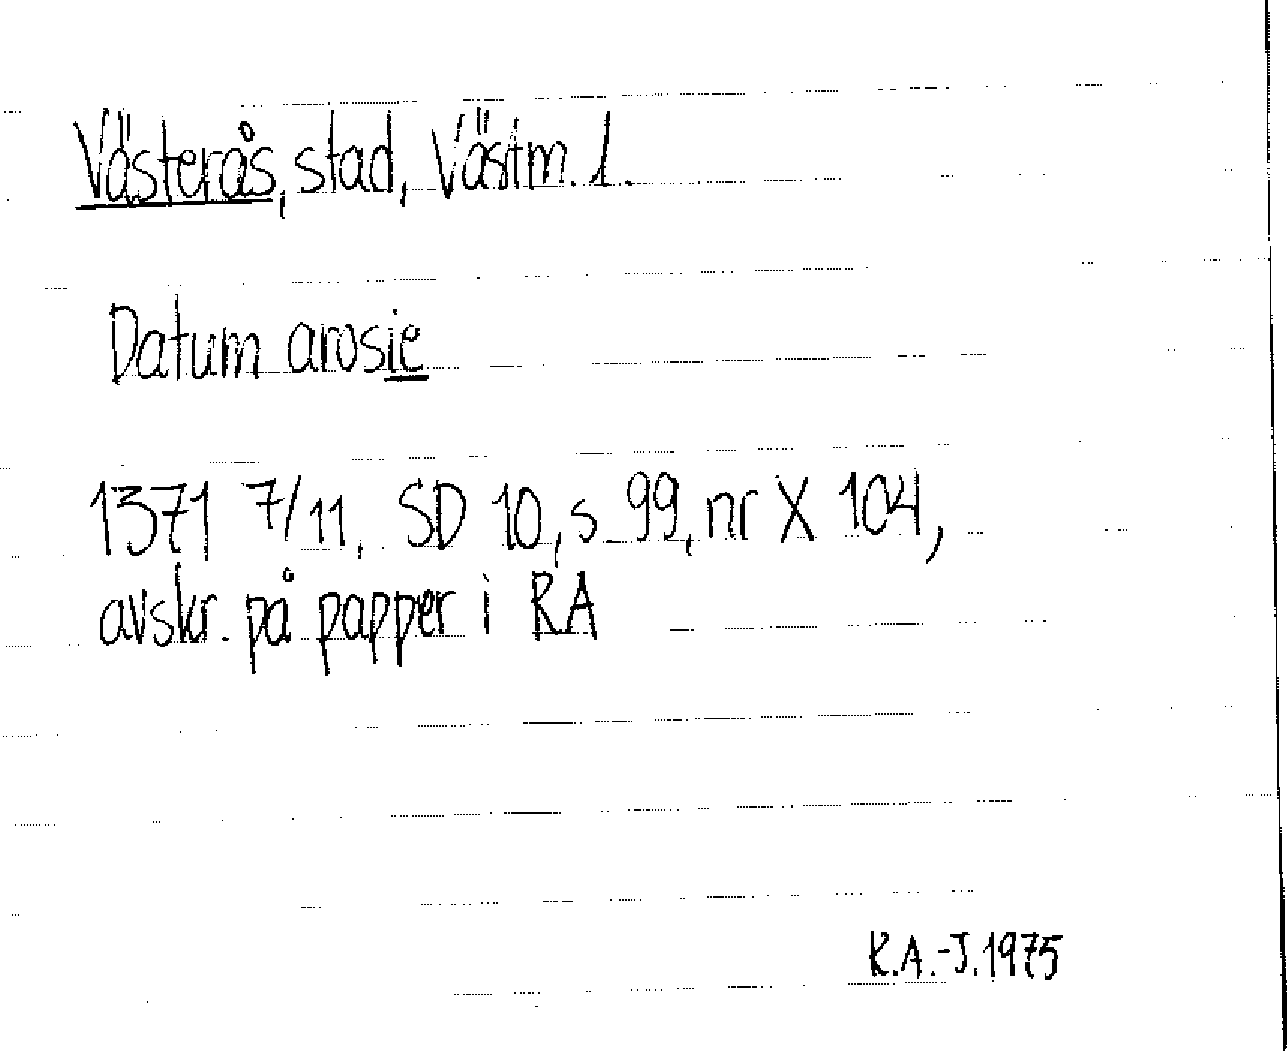 Västerås, stad, Västm. l.
Datum arosie
1371 7/11, SD 10, s 99, nr X 104,
avskr. på papper i RA
K.A.-J. 1975